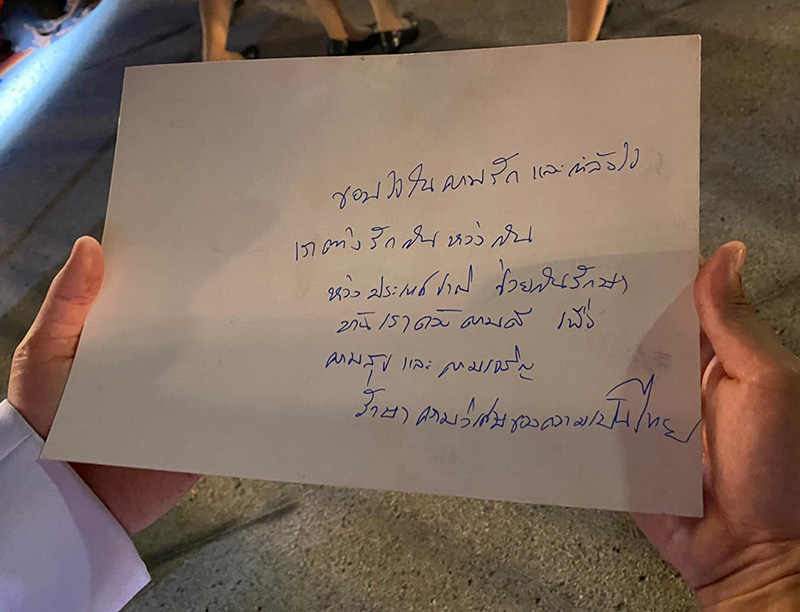 ขอบใจในความรัก และกำลังใจ
เราต่างรักกัน ห่วงกัน
ห่วงประเทศชาติ ช่วยกันรักษา
บ้านเราด้วยความดี เพื่อ
ความสุข และความเจริญ
รักษาความวิเศษของความเป็นไทย